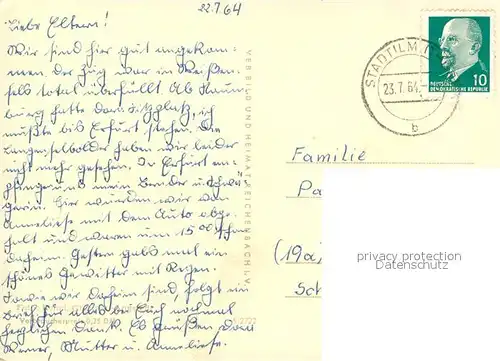 22.7.64
Liebe Eltern!
Wir sind hier gut angekom-
men der Zug war in Weißen-
fels total überfüllt Ab Naum
burg hatte dann Sitzplatz, ich
mußte bis Erfurt stehen. Die
Langenselbolder haben wir leider
nicht mehr gesehen. In Erfurt em-
pfingen uns mein Bruder u. Schwä
gerin. Hier wurden wir von
Anneliese mit dem Auto abge-
holt und waren um 15 00 schon
daheim. Gestern gabs mal ein
schönes Gewitter mit Regen.
wir daheim sind, folgt ein
Brief für alles bei Euch nochmal
herzlichen Dank. Es grüßen Doris
Werner, Mutter u. Anneliese.
VEB BILD UND HEIMAT REICHENBACH I. V.
STADTILM
23.7.64
b
10
DEUTSCHE
DEMOKRATISCHE REPUBLIK
Familie
Pa
(19a)
Sch
privacy protection
Datenschutz